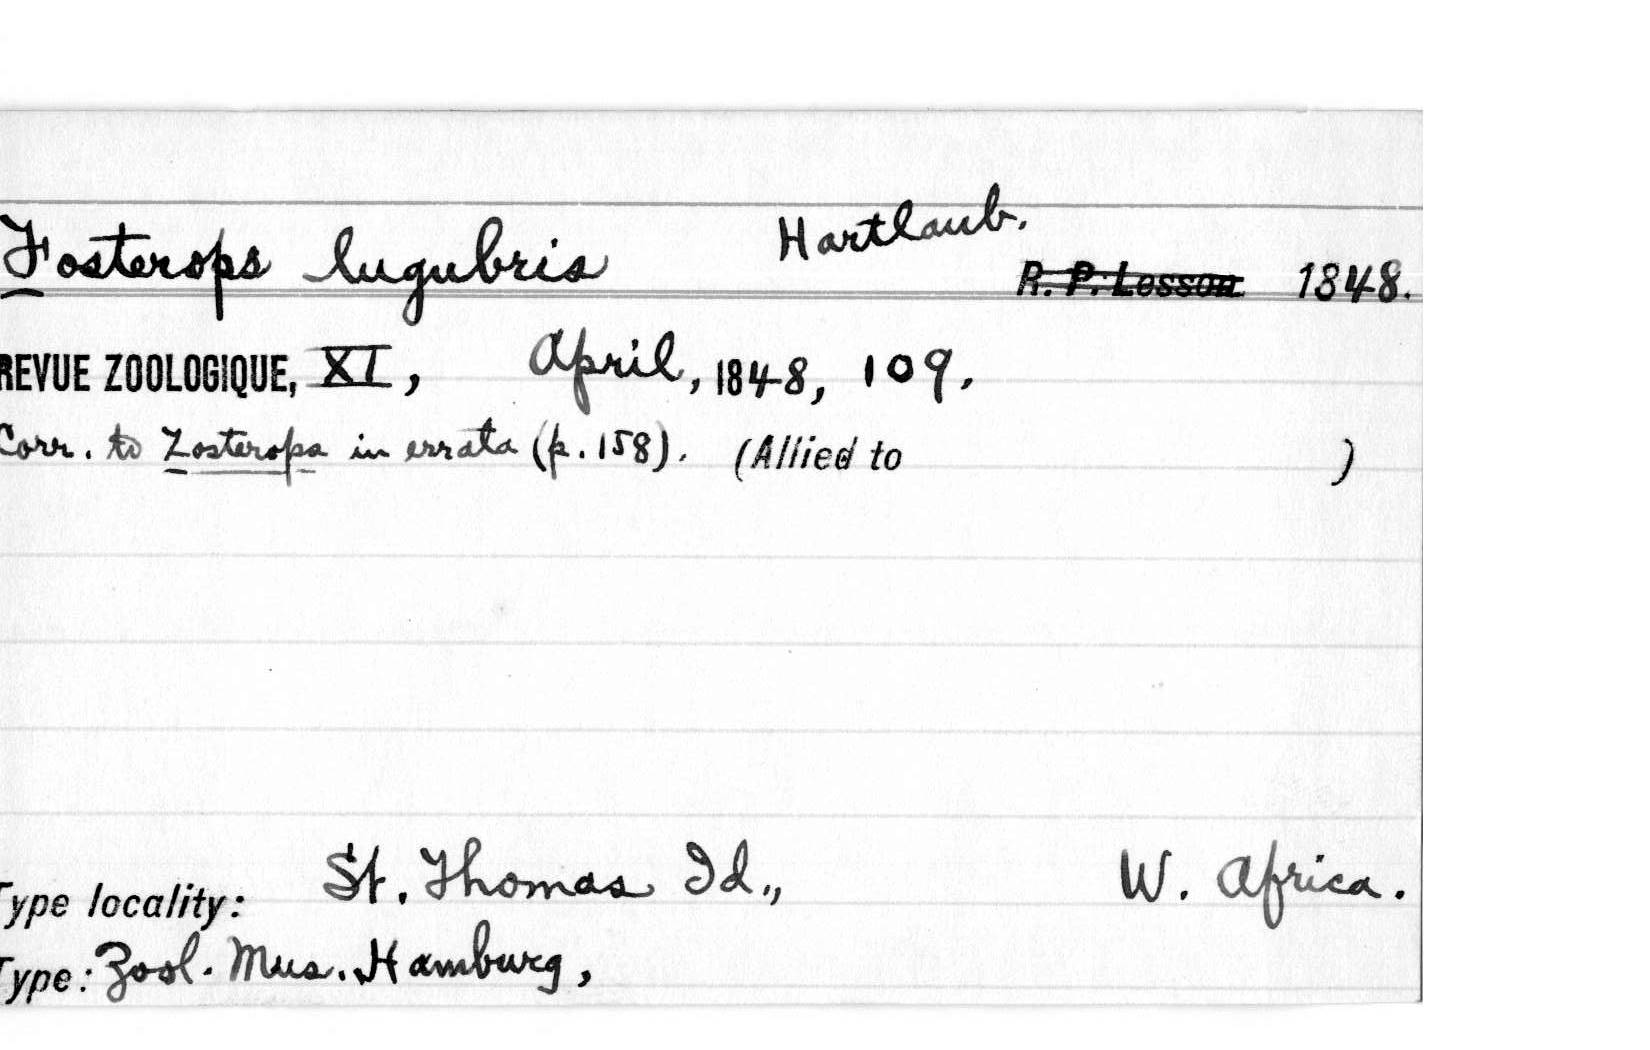 Fosterops lugubris Hartlaub. R. P. Lesson 1848.
REVUE ZOOLOGIQUE, XI, April, 1848, 109.
Corr. to Zosterops in errata (p. 158). (Allied to )
Type locality: St. Thomas Id., W. Africa.
Type: Zool. Mus. Hamburg,